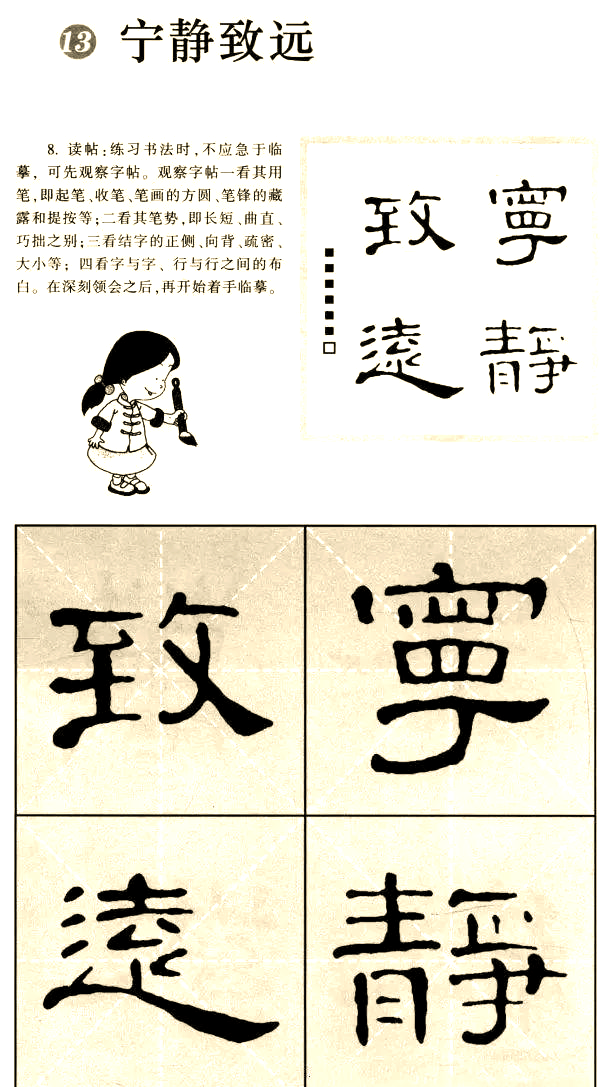 13 宁静致远
8. 读帖:练习书法时,不应急于临
摹,可先观察字帖。观察字帖一看其用
笔,即起笔、收笔、笔画的方圆、笔锋的藏
露和提按等;二看其笔势,即长短、曲直、
巧拙之别;三看结字的正侧、向背、疏密、
大小等;四看字与字、行与行之间的布
白。在深刻领会之后,再开始着手临摹。
寧靜
致遠
寧靜
致遠